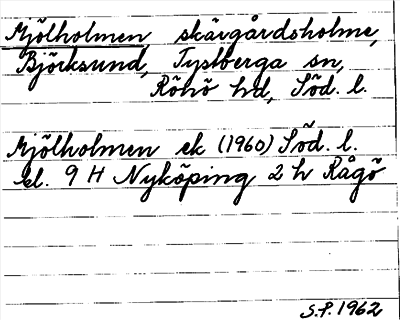 Mjölholmen, skärgårdsholme,
Björksund, Tystberga sn,
Rönö hd, Söd. l.
Mjölholmen ek (1960) Söd. l.
bl. 9 H Nyköping 2 h Rågö
S.P. 1962